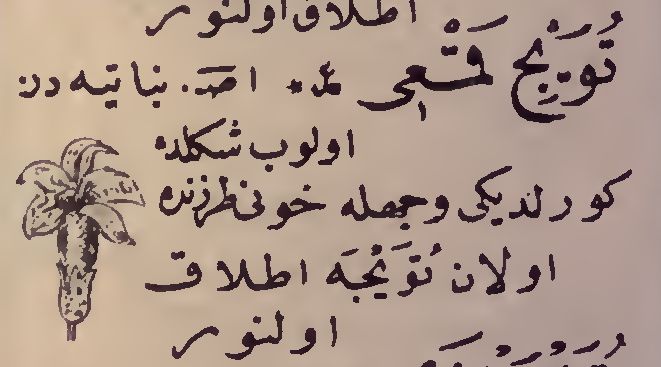 اطلاق اولنور
تُوَيْج قِمَعى اصـ. نباتيه دن
اولوب شكلده
كورلديكى وجهله خونى طرزنده
اولان تُوَيْجَه اطلاق
اولنور